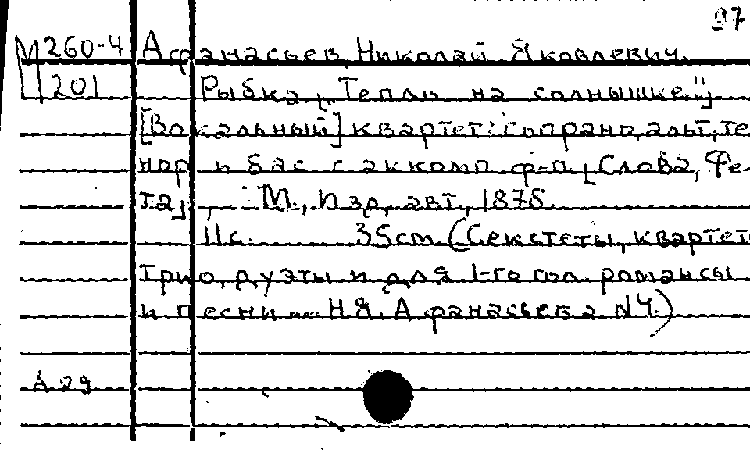 97
М 260-4 Афанасьев, Николай Яковлевич.
201 Рыбка, „Тепло на солнышке"
[Вокальный] квартет: сопрано, альт, те-
нор и бас с аккомп. ф-п. [Слова, Фе-
та], М., Изд. авт., 1875.
11с. 35см. (Секстеты, квартет
трио, дуэты и для 1-го гол. романсы
и песни ... Н.Я. Афанасьева №4)
А-29